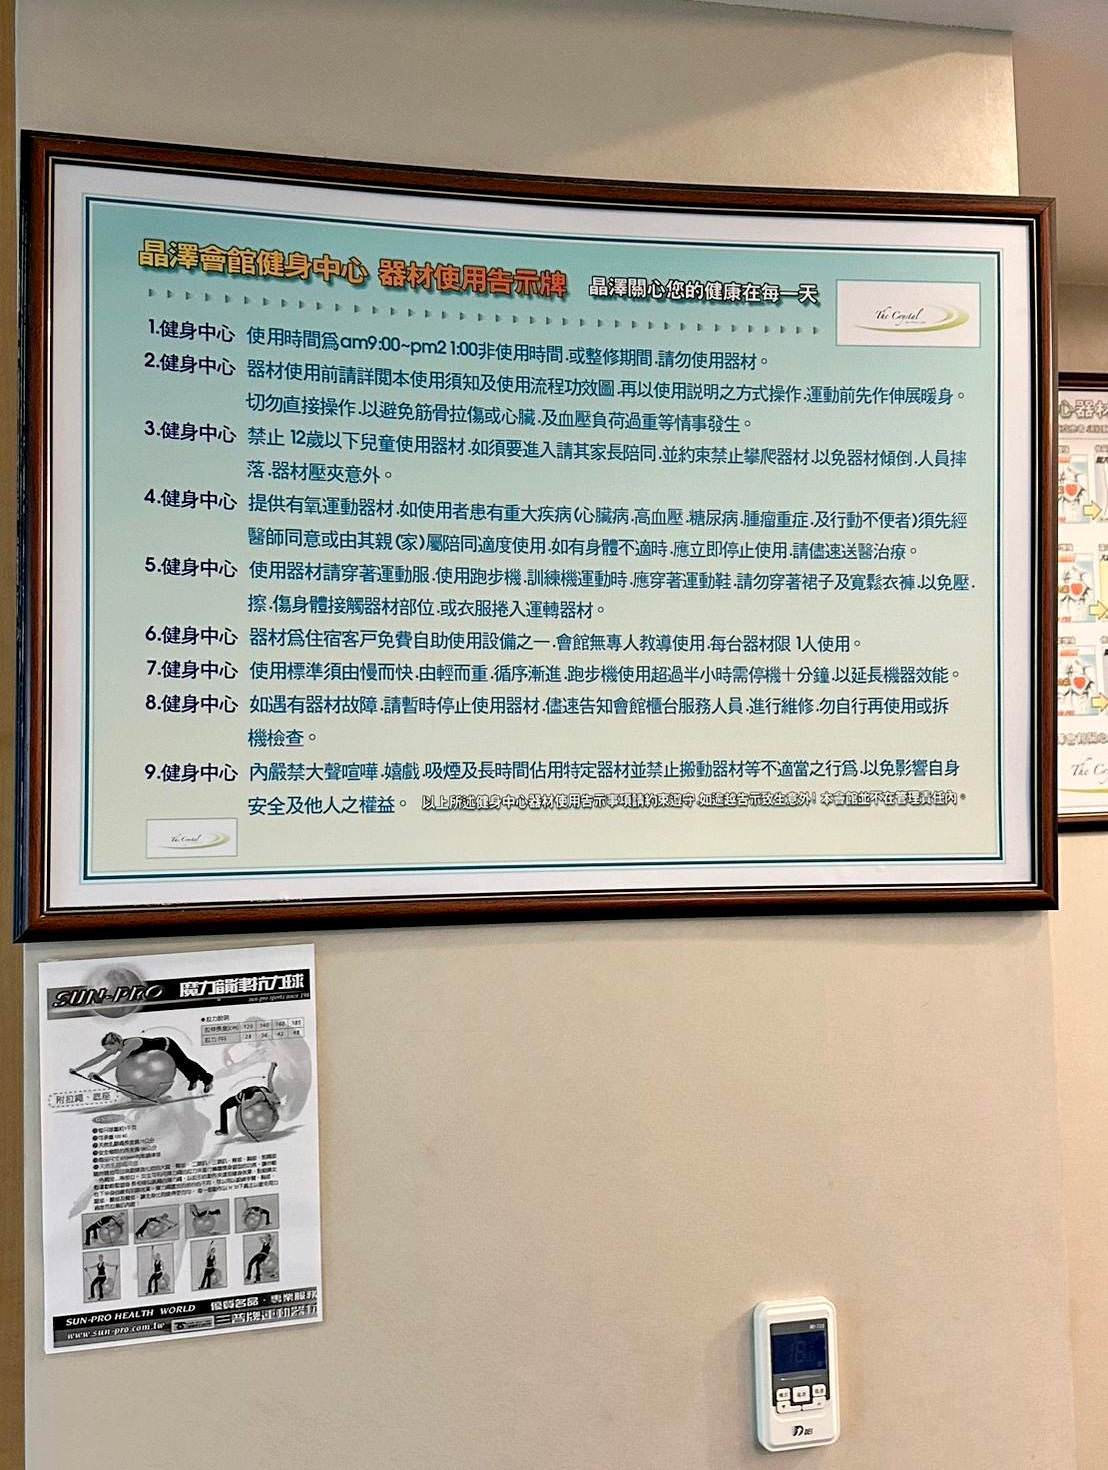 晶澤會館健身中心 器材使用告示牌 晶澤關心您的健康在每一天
The Crystal
1.健身中心 使用時間爲am9:00~pm21:00非使用時間.或整修期間.請勿使用器材。
2.健身中心 器材使用前請詳閱本使用須知及使用流程功效圖.再以使用説明之方式操作.運動前先作伸展暖身。
切勿直接操作.以避免筋骨拉傷或心臟.及血壓負荷過重等情事發生。
3.健身中心 禁止 12歲以下兒童使用器材.如須要進入請其家長陪同.並約束禁止攀爬器材.以免器材傾倒.人員摔
落.器材壓夾意外。
4.健身中心 提供有氧運動器材.如使用者患有重大疾病(心臟病.高血壓.糖尿病.腫瘤重症.及行動不便者)須先經
醫師同意或由其親(家)屬陪同適度使用.如有身體不適時.應立即停止使用.請儘速送醫治療。
5.健身中心 使用器材請穿著運動服.使用跑步機.訓練機運動時.應穿著運動鞋.請勿穿著裙子及寬鬆衣褲.以免壓.
擦.傷身體接觸器材部位.或衣服捲入運轉器材。
6.健身中心 器材爲住宿客戸免費自助使用設備之一.會館無專人教導使用.每台器材限 1人使用。
7.健身中心 使用標準須由慢而快.由輕而重.循序漸進.跑步機使用超過半小時需停機十分鐘.以延長機器效能。
8.健身中心 如遇有器材故障.請暫時停止使用器材.儘速告知會館櫃台服務人員.進行維修.勿自行再使用或拆
機檢查。
9.健身中心 內嚴禁大聲喧嘩.嬉戲.吸煙及長時間佔用特定器材並禁止搬動器材等不適當之行爲.以免影響自身
安全及他人之權益。 以上所述健身中心器材使用告示事項請約束遵守.如逾越告示致生意外!本會館並不在管理責任內。
The Crystal
SUN-PRO 魔力韻律抗力球
sun-pro sports since 198
附拉繩、底座
SUN-PRO HEALTH WORLD 優質名品．專業服務
www.sun-pro.com.tw
心器材
The C